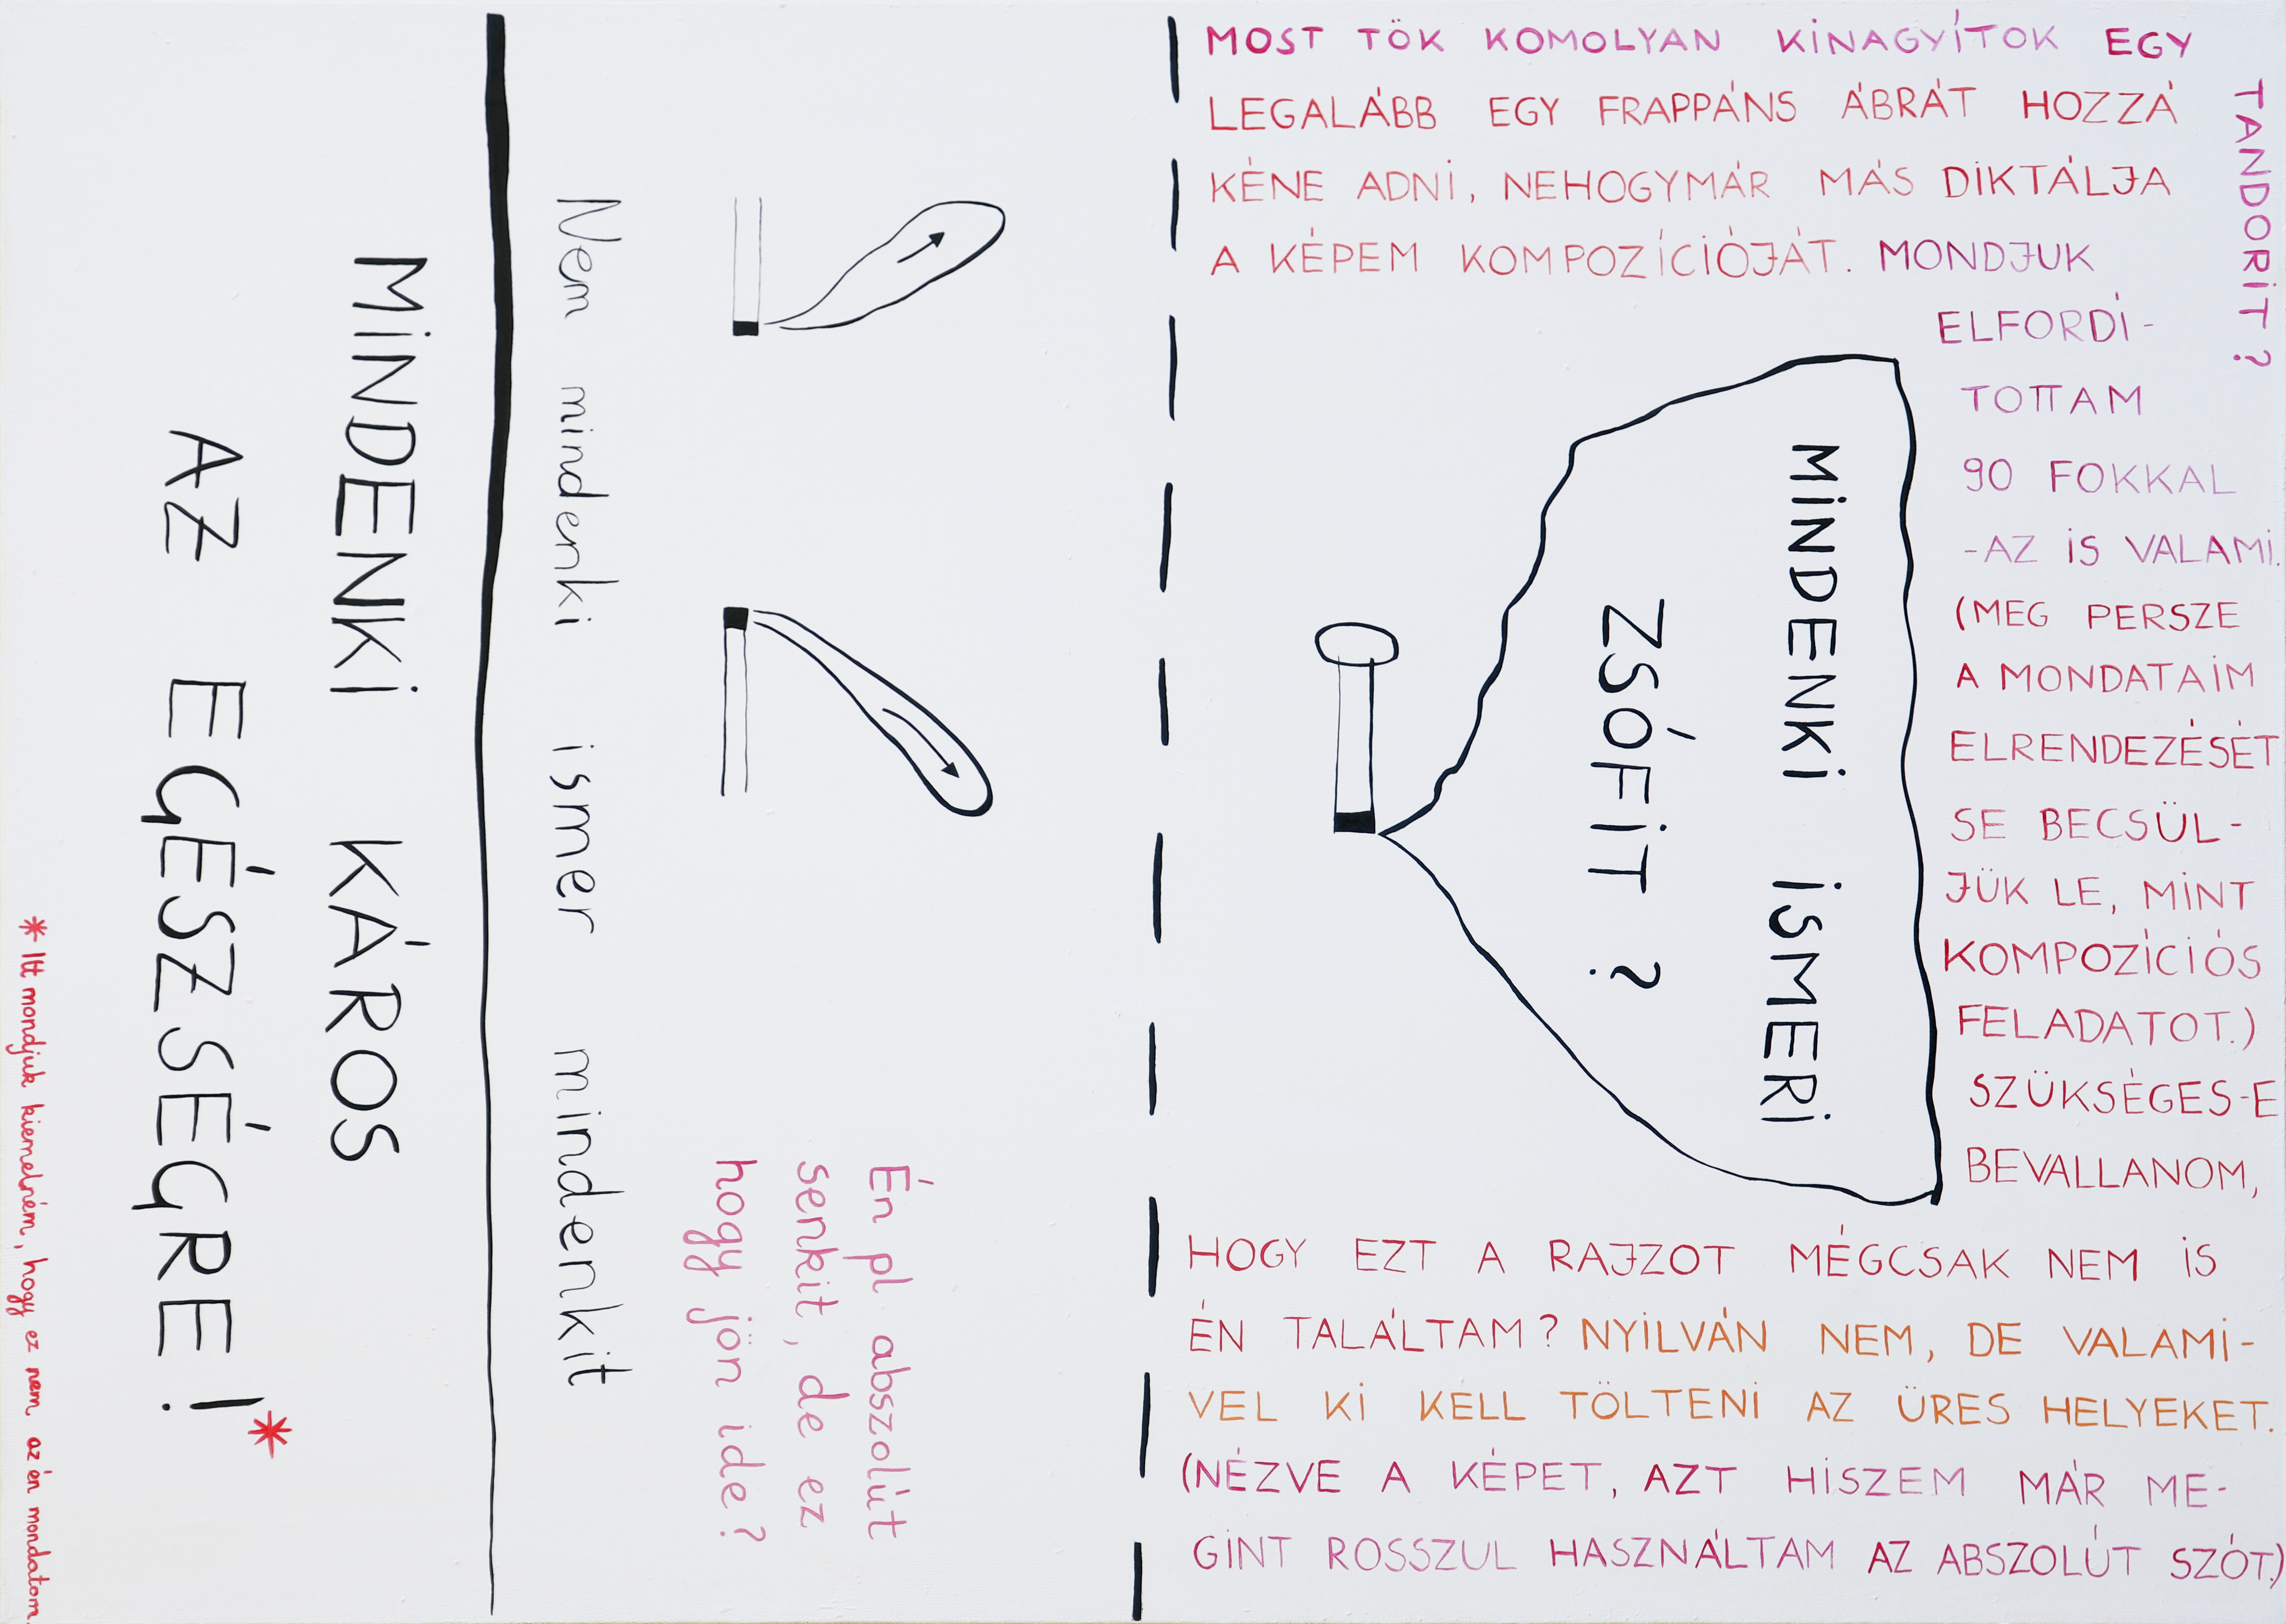 MOST TÖK KOMOLYAN KINAGYÍTOK EGY
TANDORIT?
LEGALÁBB EGY FRAPPÁNS ÁBRÁT HOZZÁ
KÉNE ADNI, NEHOGYMÁR MÁS DIKTÁLJA
A KÉPEM KOMPOZÍCIÓJÁT. MONDJUK
ELFORDÍ-
TOTTAM
90 FOKKAL
-AZ IS VALAMI.
(MEG PERSZE
A MONDATAIM
ELRENDEZÉSÉT
SE BECSÜL-
JÜK LE, MINT
KOMPOZÍCIÓS
FELADATOT.)
SZÜKSÉGES-E
BEVALLANOM,
HOGY EZT A RAJZOT MÉGCSAK NEM IS
ÉN TALÁLTAM? NYILVÁN NEM, DE VALAMI-
VEL KI KELL TÖLTENI AZ ÜRES HELYEKET.
(NÉZVE A KÉPET, AZT HISZEM MÁR ME-
GINT ROSSZUL HASZNÁLTAM AZ ABSZOLÚT SZÓT.)
MINDENKI ISMERI
ZSÓFIT?
Én pl abszolút
senkit, de ez
hogy jön ide?
Nem mindenki ismer mindenkit
MINDENKI KÁROS
AZ EGÉSZSÉGRE!*
* Itt mondjuk kiemelném, hogy ez nem az én mondatom.